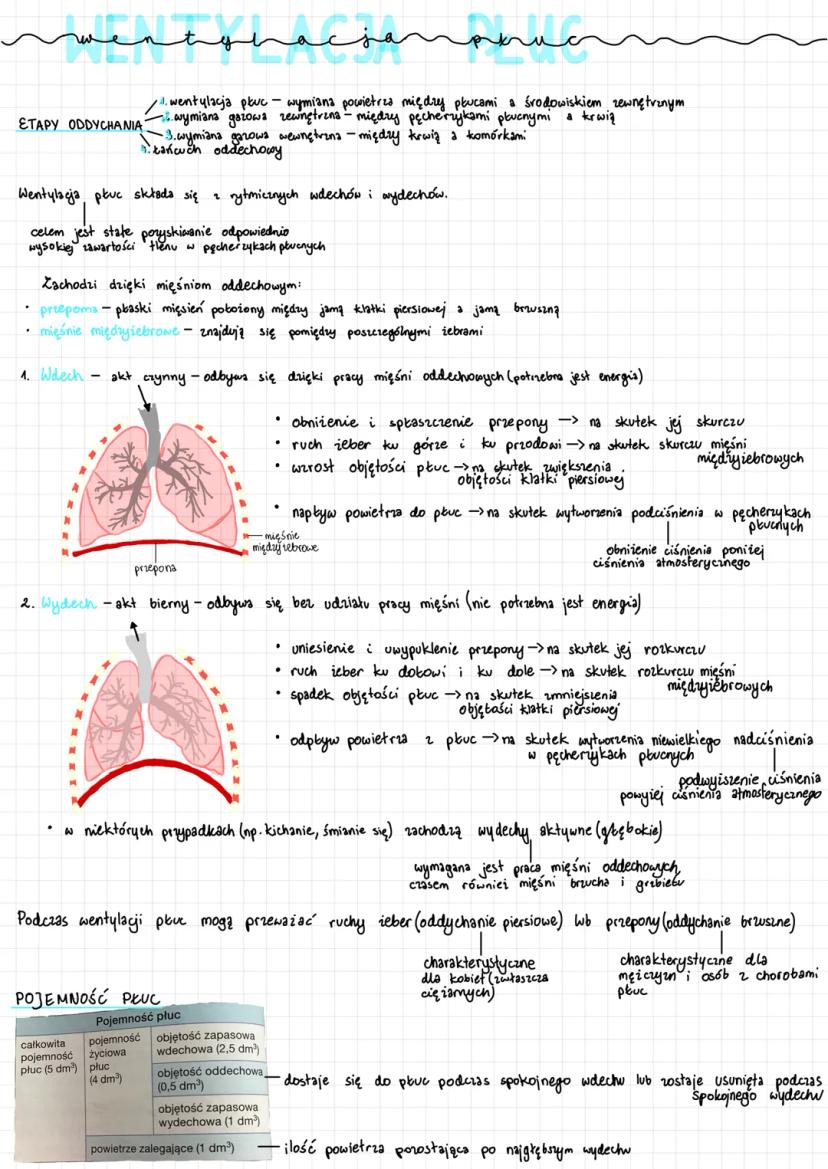 WENTYLACJA PŁUC
wentylacja płuc
ETAPY ODDYCHANIA
1. wentylacja płuc – wymiana powietrza między płucami a środowiskiem zewnętrznym
2. wymiana gazowa zewnętrzna – między pęcherzykami płucnymi a krwią
3. wymiana gazowa wewnętrzna – między krwią a komórkami
4. łańcuch oddechowy
Wentylacja płuc składa się z rytmicznych wdechów i wydechów.
celem jest stałe pozyskiwanie odpowiednio
wysokiej zawartości tlenu w pęcherzykach płucnych
Zachodzi dzięki mięśniom oddechowym:
• przepoma – płaski mięsień położony między jamą klatki piersiowej a jamą brzuszną
• mięśnie międzyżebrowe – znajdują się pomiędzy poszczególnymi żebrami
1. Wdech – akt czynny – odbywa się dzięki pracy mięśni oddechowych (potrzebna jest energia)
• obniżenie i spłaszczenie przepony → na skutek jej skurczu
• ruch żeber ku górze i ku przodowi → na skutek skurczu mięśni
międzyżebrowych
• wzrost objętości płuc → na skutek zwiększenia
objętości klatki piersiowej
• napływ powietrza do płuc → na skutek wytworzenia podciśnienia w pęcherzykach
płucnych
obniżenie ciśnienia poniżej
ciśnienia atmosferycznego
mięśnie
międzyżebrowe
przepona
2. Wydech – akt bierny – odbywa się bez udziału pracy mięśni (nie potrzebna jest energia)
• uniesienie i uwypuklenie przepony → na skutek jej rozkurczu
• ruch żeber ku dołowi i ku dole → na skutek rozkurczu mięśni
międzyżebrowych
• spadek objętości płuc → na skutek zmniejszenia
objętości klatki piersiowej
• odpływ powietrza z płuc → na skutek wytworzenia niewielkiego nadciśnienia
w pęcherzykach płucnych
podwyższenie ciśnienia
powyżej ciśnienia atmosferycznego
• w niektórych przypadkach (np. kichanie, śmianie się) zachodzą wydechy aktywne (głębokie)
wymagana jest praca mięśni oddechowych,
czasem również mięśni brzucha i grzbietu
Podczas wentylacji płuc mogą przeważać ruchy żeber (oddychanie piersiowe) lub przepony (oddychanie brzuszne)
charakterystyczne
dla kobiet (zwłaszcza
ciężarnych)
charakterystyczne dla
mężczyzn i osób z chorobami
płuc
POJEMNOŚĆ PŁUC
Pojemność płuc
całkowita
pojemność
płuc (5 dm³)
pojemność
życiowa
płuc
(4 dm³)
objętość zapasowa
wdechowa (2,5 dm³)
objętość oddechowa
(0,5 dm³)
objętość zapasowa
wydechowa (1 dm³)
powietrze zalegające (1 dm³)
dostaje się do płuc podczas spokojnego wdechu lub zostaje usunięta podczas
spokojnego wydechu
ilość powietrza pozostająca po najgłębszym wydechu